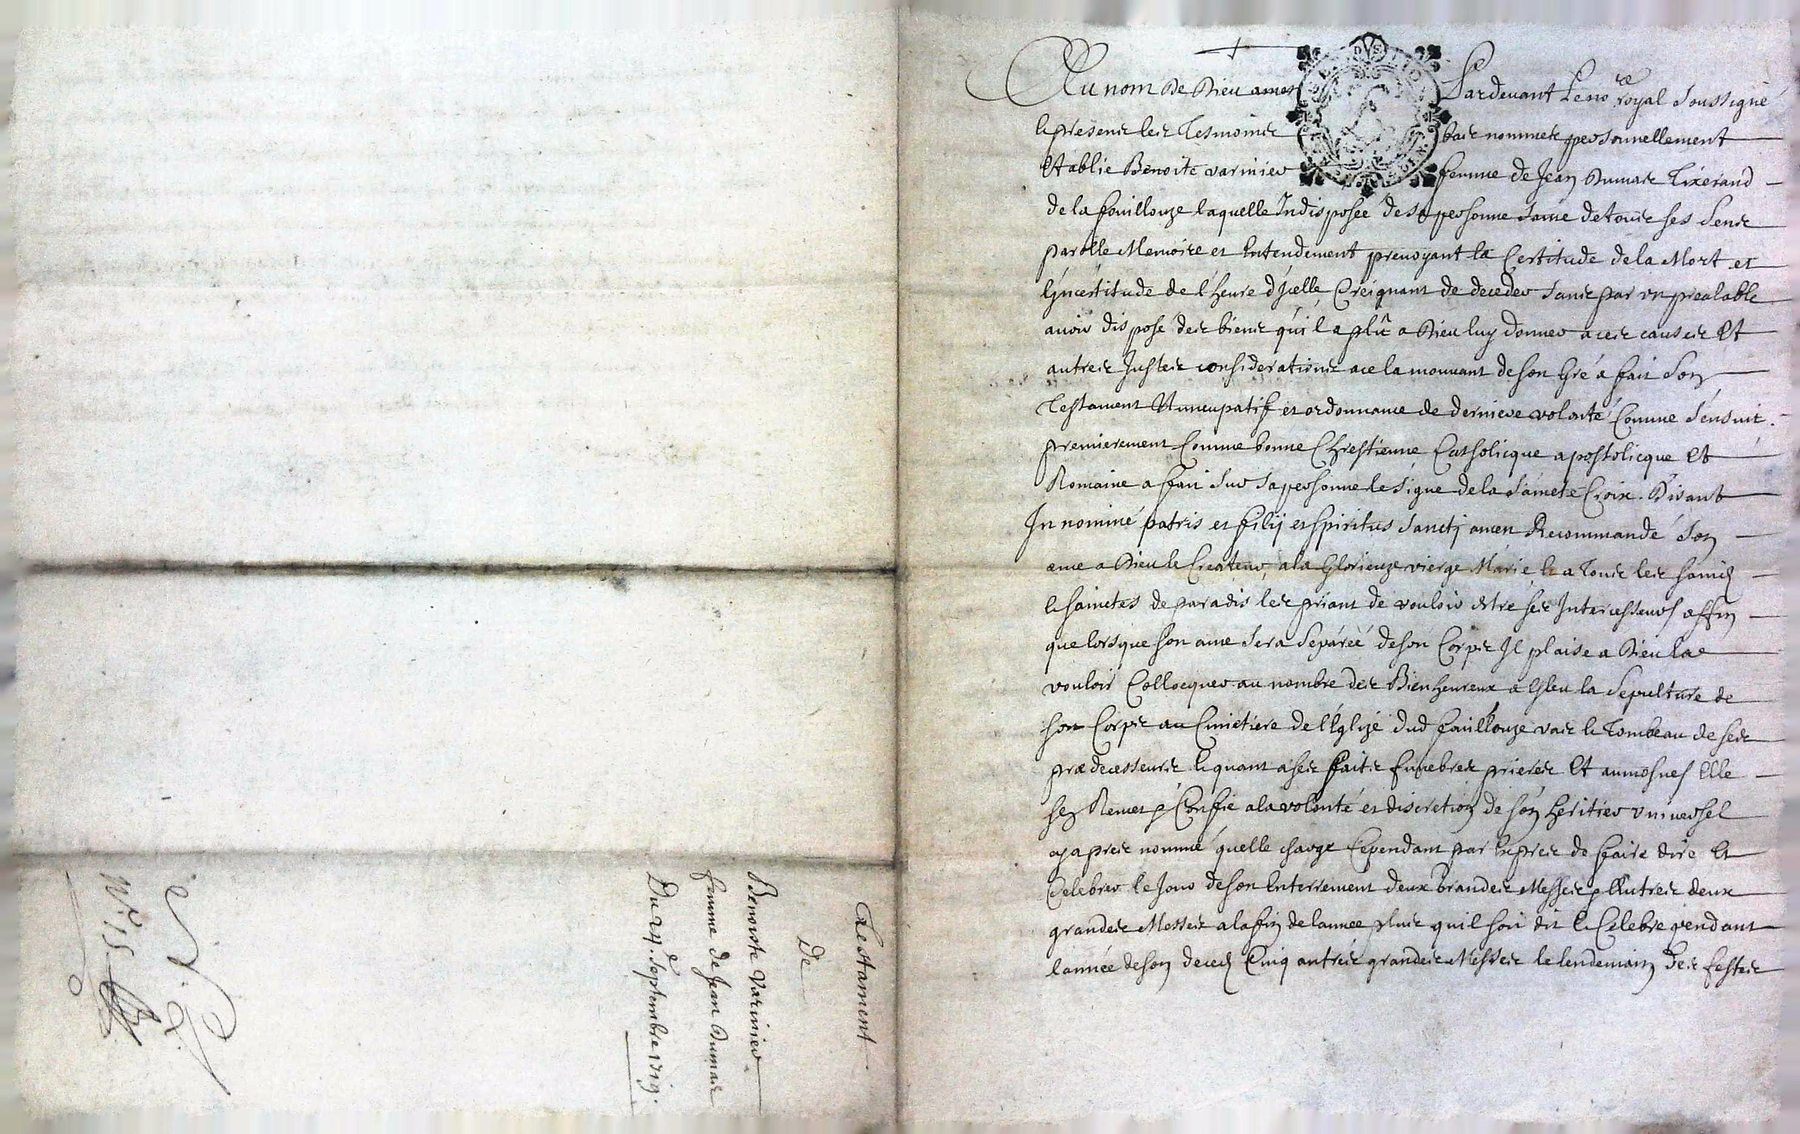 Testament
De
Benoiste Varinier
femme de Jean Dumas
Du 24e. Septembre 1719.
Au nom De Dieu amen Pardevant Le nore royal soussigné
& presens les Tesmoins bas nommés personnellement
Establie Benoite varinier femme de Jean Dumas Tixerand
de la fouillouze laquelle Indisposée de sa personne saine de tous ses sens
parolle Memoire et Entendement prevoyant la Certitude de la Mort et
lyncertitude de l'heure d'Jcelle Creignant de deceder sans par un prealable
avoir dispose des biens qu'il a plût a Dieu luy donner a ces causes Et
autres Justes considerations a ce la mouvant de son Gré a fait Son
Testament Nuncupatif et ordonnance de derniere volonté Comme s'ensuit.
premierement Comme bonne Chrestienne Catholicque apostolicque Et
Romaine a fait sur sa personne le signe de la sainete Croix. Disant
In nominé patris et filij et spiritus sanctj amen Recommandé son
ame a Dieu le Createur, a la Glorieuze vierge Marie & a Tous les saincts
& sainctes de paradis les priant de vouloir estre ses Intercesseurs affin
que lorsque son ame sera separéé de son Corps Jl plaise a Dieu la
vouloir Collocquer au nombre des Bienheureux a Esleu la Sepulture de
son Corps au Cimetiere de l'Eglize dud fouillouze vas & Tombeau de ses
prædecesseurs & quant a ses faits funebres prieres Et aumosnes Elle
sen Remet & Confie a la volonté et discretion de son heritier universel
cy apres nommé qu'elle charge Cependant par Expres de faire dire Et
Celebrer le Jour de son Enterrement deux Grandes Messes & Autres deux
grandes Messes a la fin de lannee plus quil soit dit & Celebre pendant
lannée de son deces Cinq autres grandes Messes le lendemain des festes